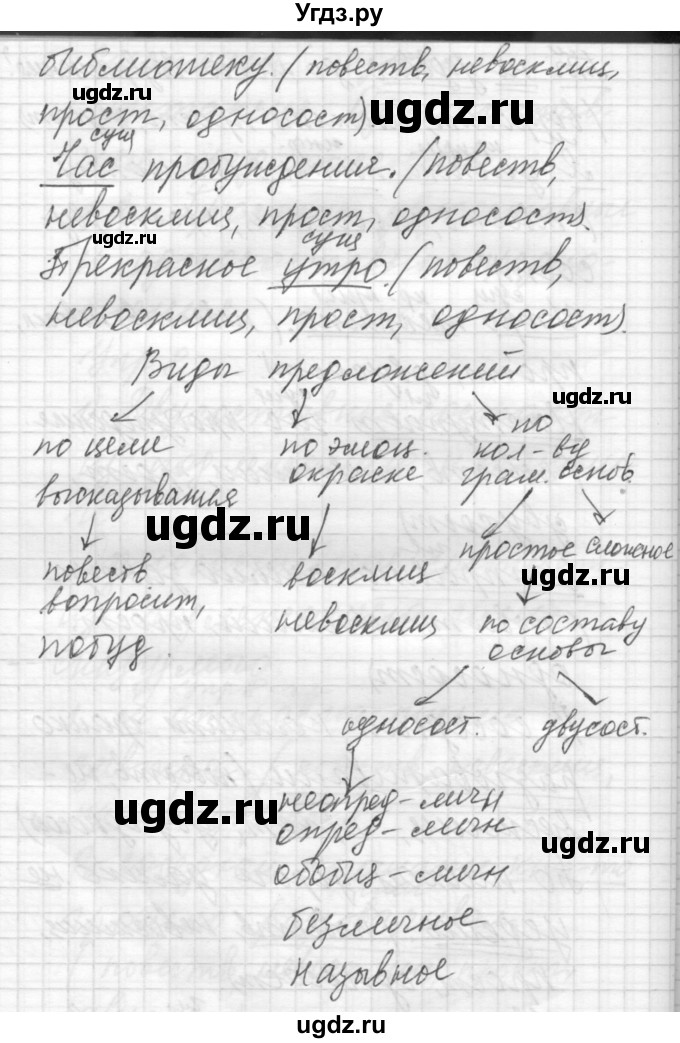 Угдз.ру
библиотеку. (повеств, невосклиц,
ugdz.ru ugdz.ru
прост, односост).
сущ
Час пробуждения. (повеств,
невосклиц, прост, односост).
ugdz.ru
сущ
Прекрасное утро. (повеств,
невосклиц, прост, односост).
Виды предложений
ugdz.ru
по цели по эмоц. по кол-ву
высказывания окраске грам. основ.
ugdz.ru
простое сложное
повеств восклиц ugdz.ru
вопросит, невосклиц по составу
побуд. основы
односост. двусост.
неопред-личн
ugdz.ru
опред-личн
ugdz.ru
обобщ-личн
безличное
назывное
ugdz.ru